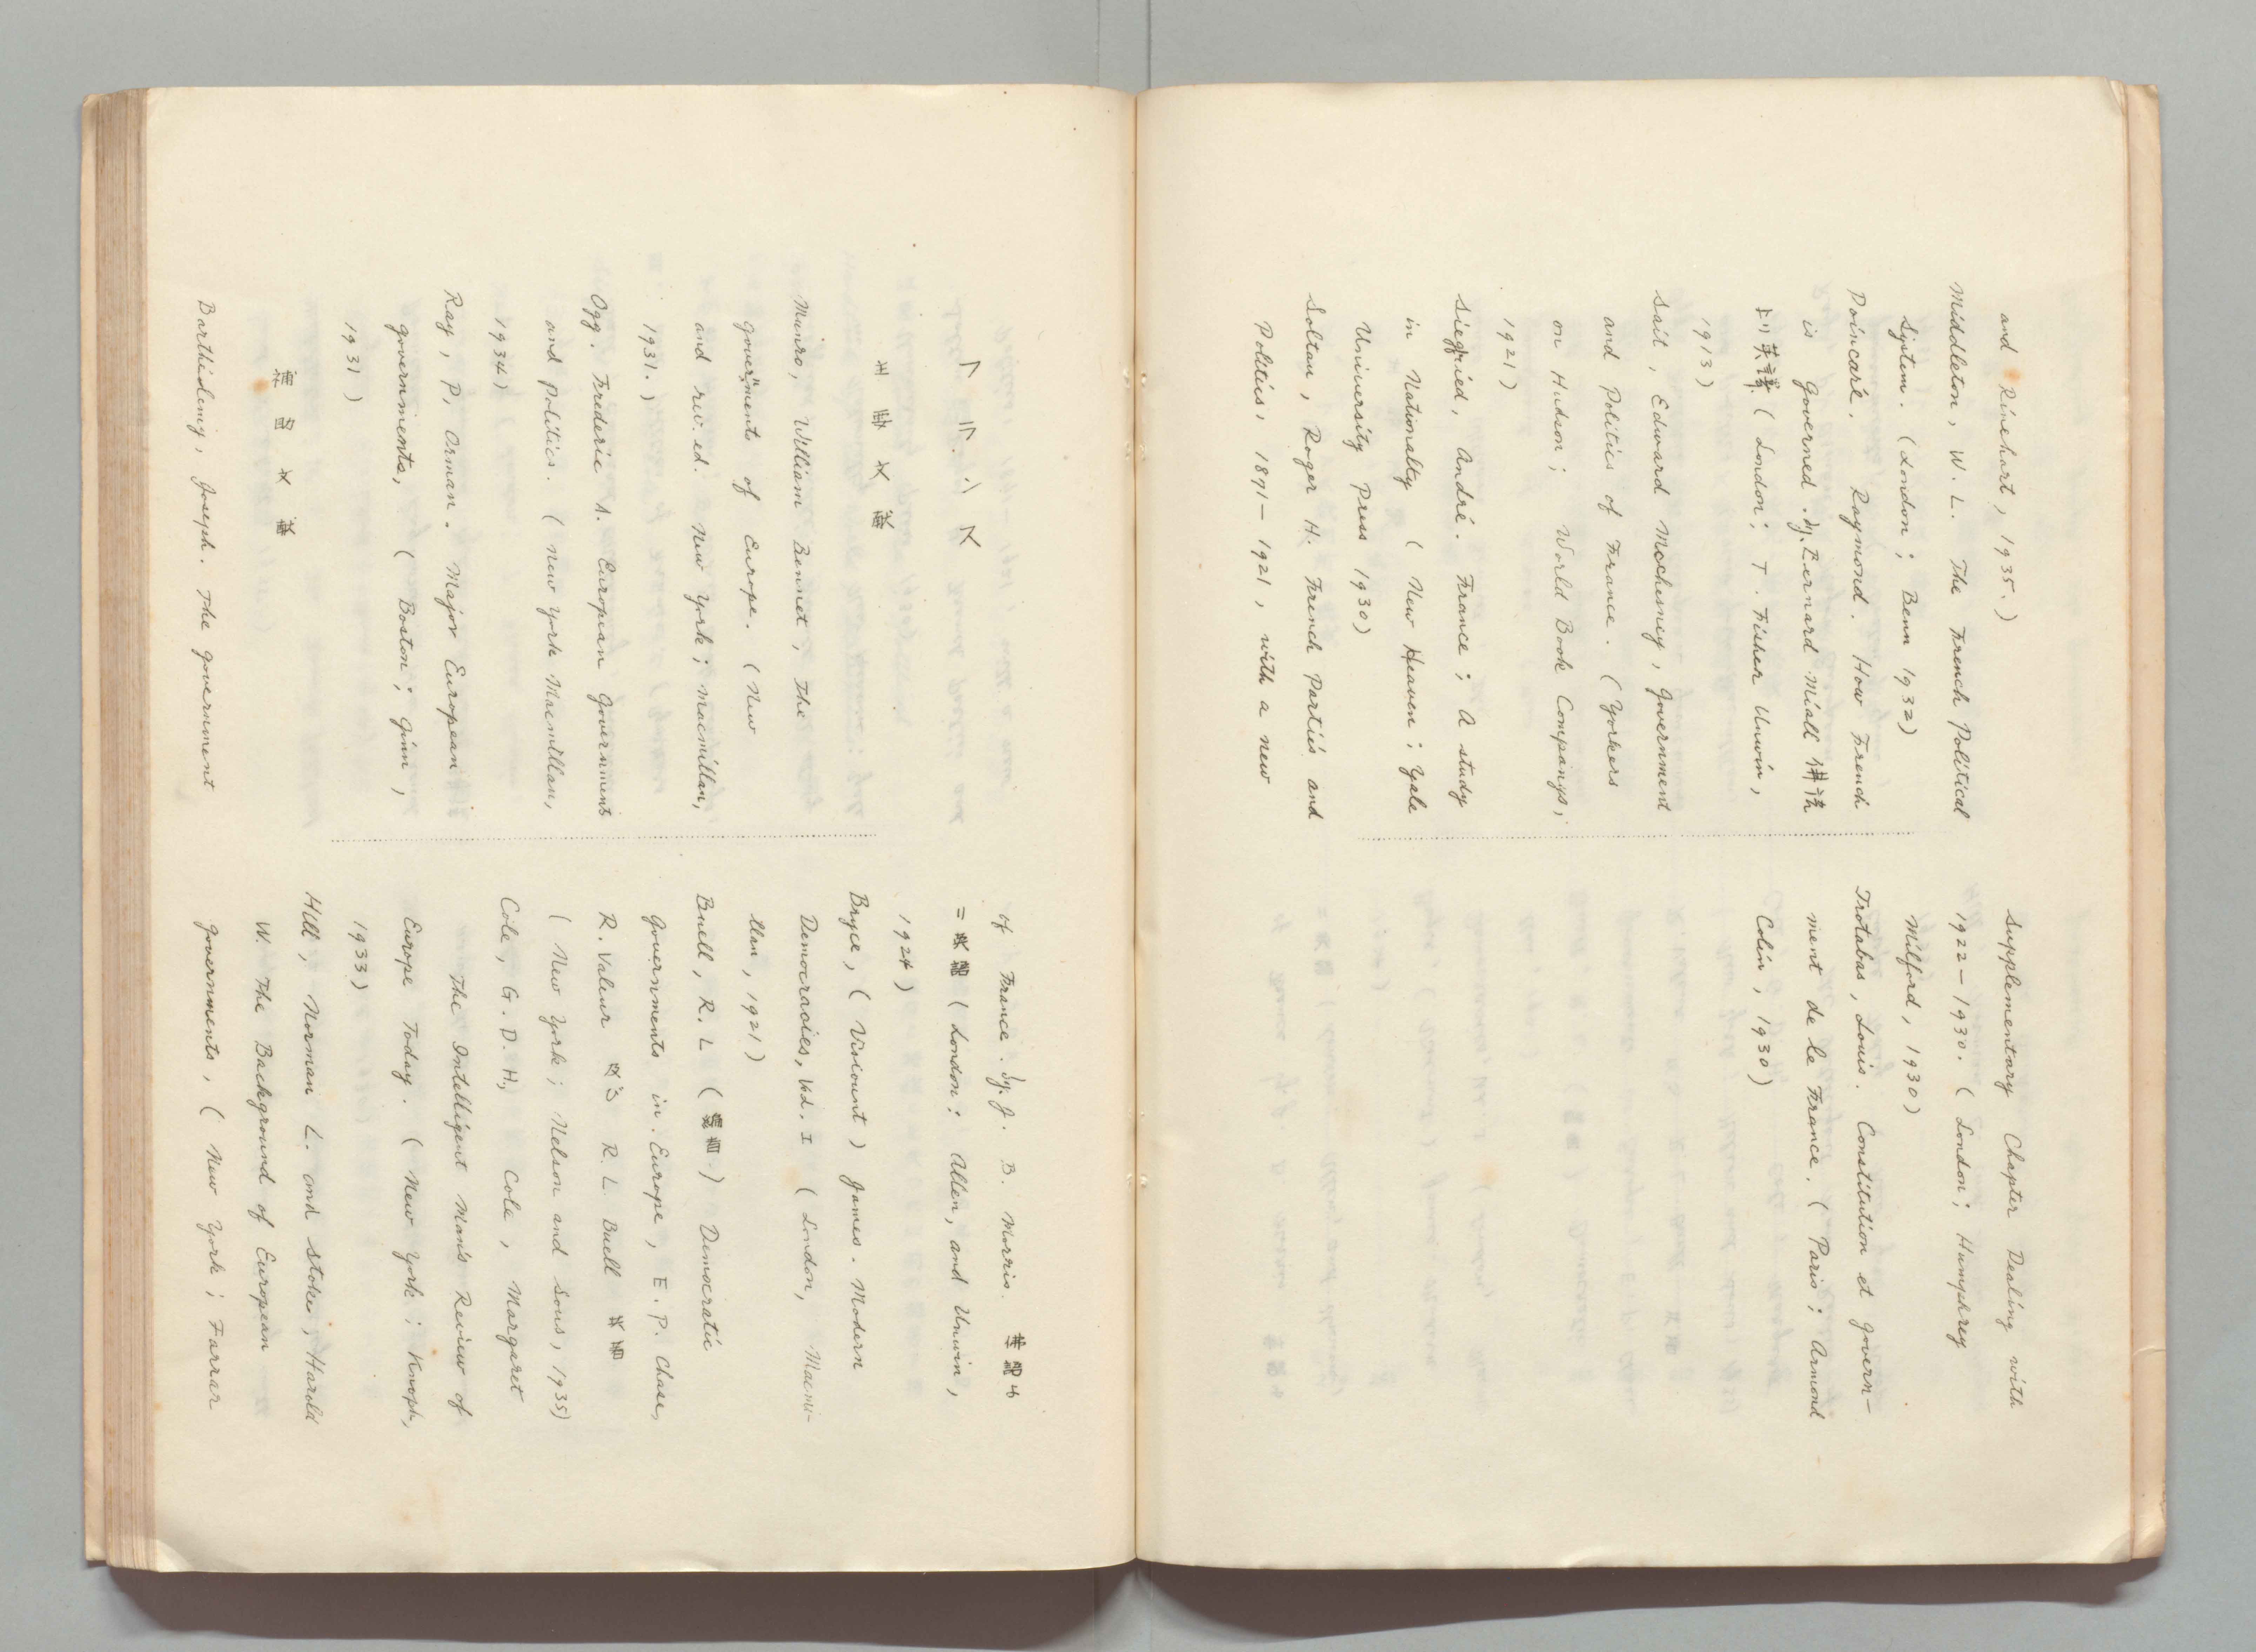 and Rinehart, 1935.)
Middleton, W. L. The French Political
System. (London; Benn 1932)
Poincaré. Raymond. How French
is Governed. by. Bernard Miall 佛語
ヨリ英譯 (London; T. Fisher Unwin,
1913)
Sait, Edward Mcchesney, Government
and Politics of France. (Yorkers
on Hudson; World Book Companys;
1921)
Siegfried, André. France; A study
in Nationalty (New Heaven; Yale
University Press 1930)
Soltau, Roger H. French Parties and
Politics, 1891-1921, with a new
Supplementary Chapter Dealing with
1922-1930. (London; Humphrey
Milford, 1930)
Trotabas, Louis. Constitution et Govern-
ment de le France. (Paris; Armond
Colin, 1930)
主要文献
Munro, William Bennet, The
goverment of Europe. (New
and rev. ed. New York; Macmillan,
1931.)
Ogg. Frederic A. European Governments
and Politics. (New York Macmillan,
1934)
Ray, P, Orman. Major European
governments, (Boston; Ginn,
1931)
文献
Barthélemy, Joseph. The Government
of France. by. J. B. Morris.
(London: Allen, and Unwin,
1924)
Bryce, (Viscount) James. Modern
Democracies, Vol. I (London, Macmi-
llan, 1921)
Buell, R. L ( ) Democratic
Governments in Europe, E. P. Chase,
R. Valeur 及ビ R. L Buell
(New York; Nelson and Sons, 1935)
Cole, G. D. H, Cole, Margaret
The Intelligent Man's Review of
Europe Today. (New York; Knoph,
1933)
Hill, Norman L. and Stoke, Harold
W. The Background of European
governments, (New York; Farrar